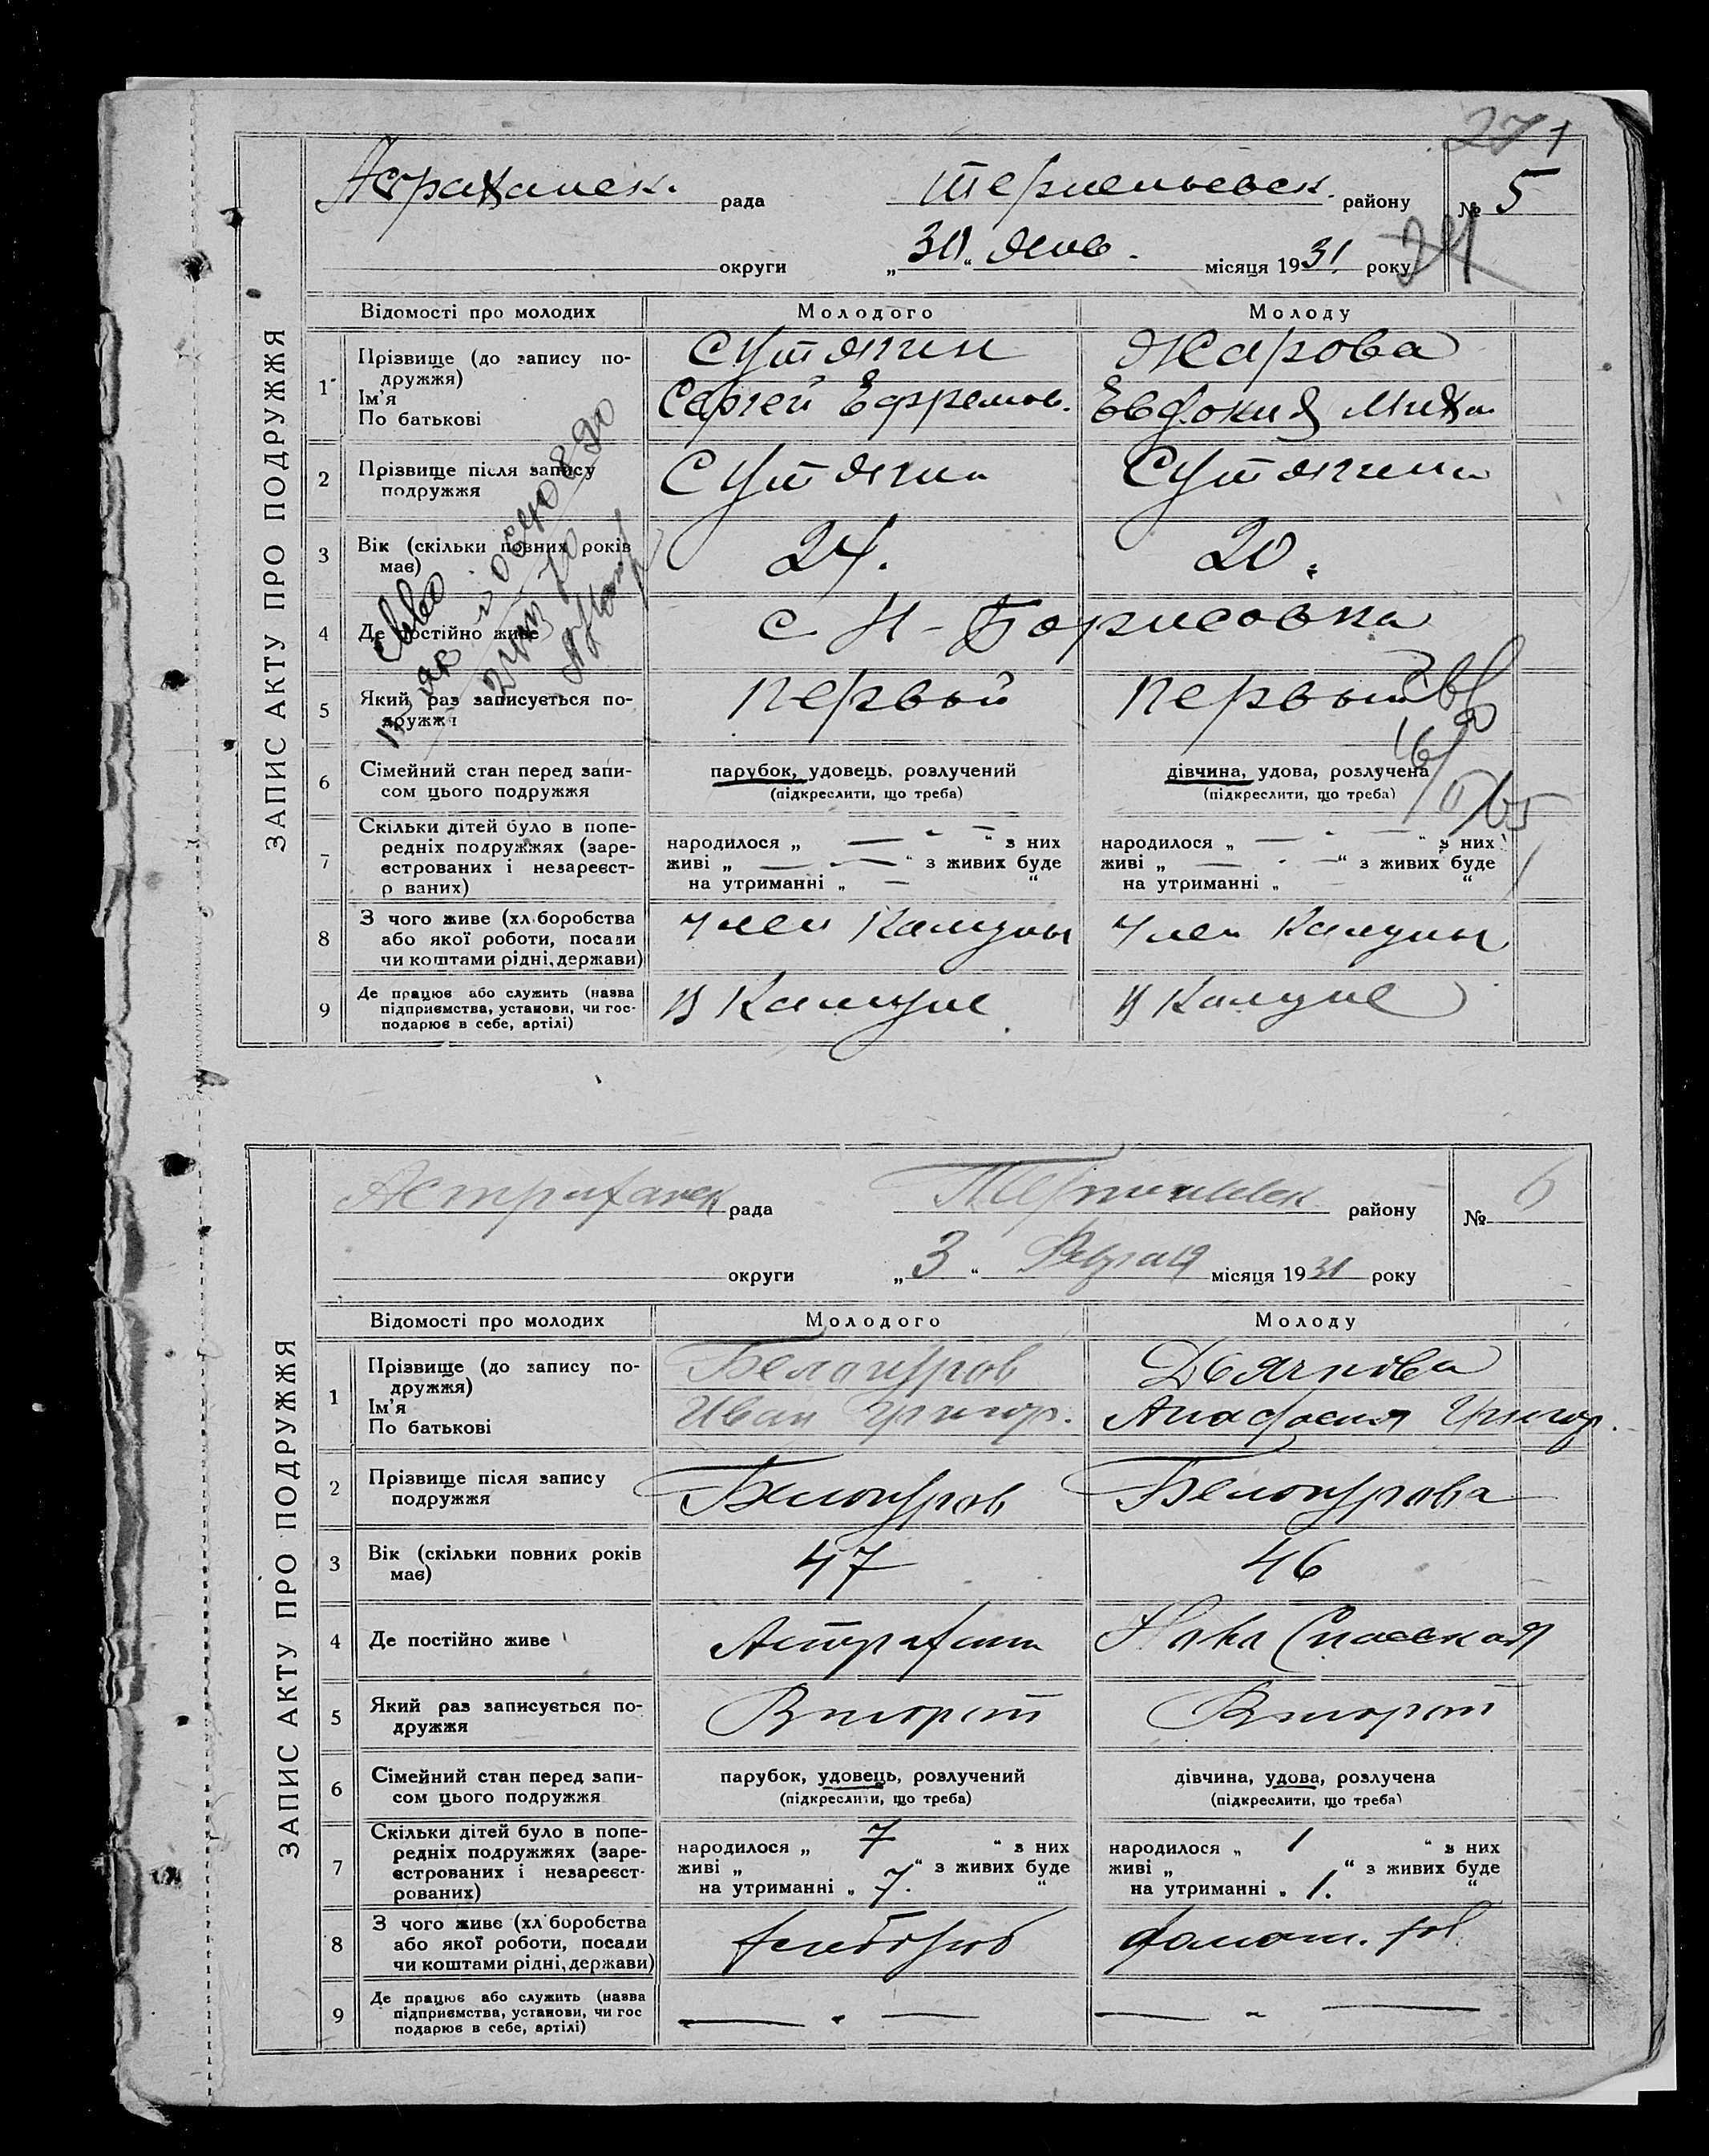 271
Астраханск. рада Терпеньевск. району № 5
округи „30“ Янв. місяця 1931 року
ЗАПИС АКТУ ПРО ПОДРУЖЖЯ
Відомості про молодих Молодого Молоду
1 Прізвище (до запису по-
дружжя) Сутягин Жарова
Ім'я
По батькові Сергей Ефремов. Евдокия Миха
2 Прізвище після запису
подружжя Сутягин Сутягина
3 Вік (скільки повних років
має) 24. 20.
4 Де постійно живе с Н-Борисовка
5 Який раз записується по-
дружжя Первый Первый
6 Сімейний стан перед запи-
сом цього подружжя
парубок, удовець, розлучений дівчина, удова, розлучена
(підкреслити, що треба) (підкреслити, що треба)
7 Скільки дітей було в попе-
редніх подружжях (заре-
єстрованих і незареєст-
р ваних)
народилося „ — “ з них народилося „ — “ з них
живі „ — “ з живих буде живі „ — “ з живих буде
на утриманні „ — “ на утриманні „ — “
8 З чого живе (хл боробства
або якої роботи, посади
чи коштами рідні, держави)
Член Камуны Член Камуны
9 Де працює або служить (назва
підприємства, установи, чи гос-
подарює в себе, артілі)
В Камуне В Камуне
Астрахански рада району № 6
округи „3“ Февраля місяця 1931 року
ЗАПИС АКТУ ПРО ПОДРУЖЖЯ
Відомості про молодих Молодого Молоду
1 Прізвище (до запису по-
дружжя) Белагуров Дьячкова
Ім'я
По батькові Иван Григор. Анафасия Григор.
2 Прізвище після запису
подружжя Белогуров Белогурова
3 Вік (скільки повних років
має) 47 46
4 Де постійно живе Астрахань Ново Спасская
5 Який раз записується по-
дружжя Второй Второй
6 Сімейний стан перед запи-
сом цього подружжя
парубок, удовець, розлучений дівчина, удова, розлучена
(підкреслити, що треба) (підкреслити, що треба)
7 Скільки дітей було в попе-
редніх подружжях (заре-
єстрованих і незареєст-
рованих)
народилося „ 7 “ з них народилося „ 1 “ з них
живі „ “ з живих буде живі „ “ з живих буде
на утриманні „ 7. “ на утриманні „ 1. “
8 З чого живе (хл боробства
або якої роботи, посади
чи коштами рідні, держави)
хлебороб
9 Де працює або служить (назва
підприємства, установи, чи гос
подарює в себе, артілі)